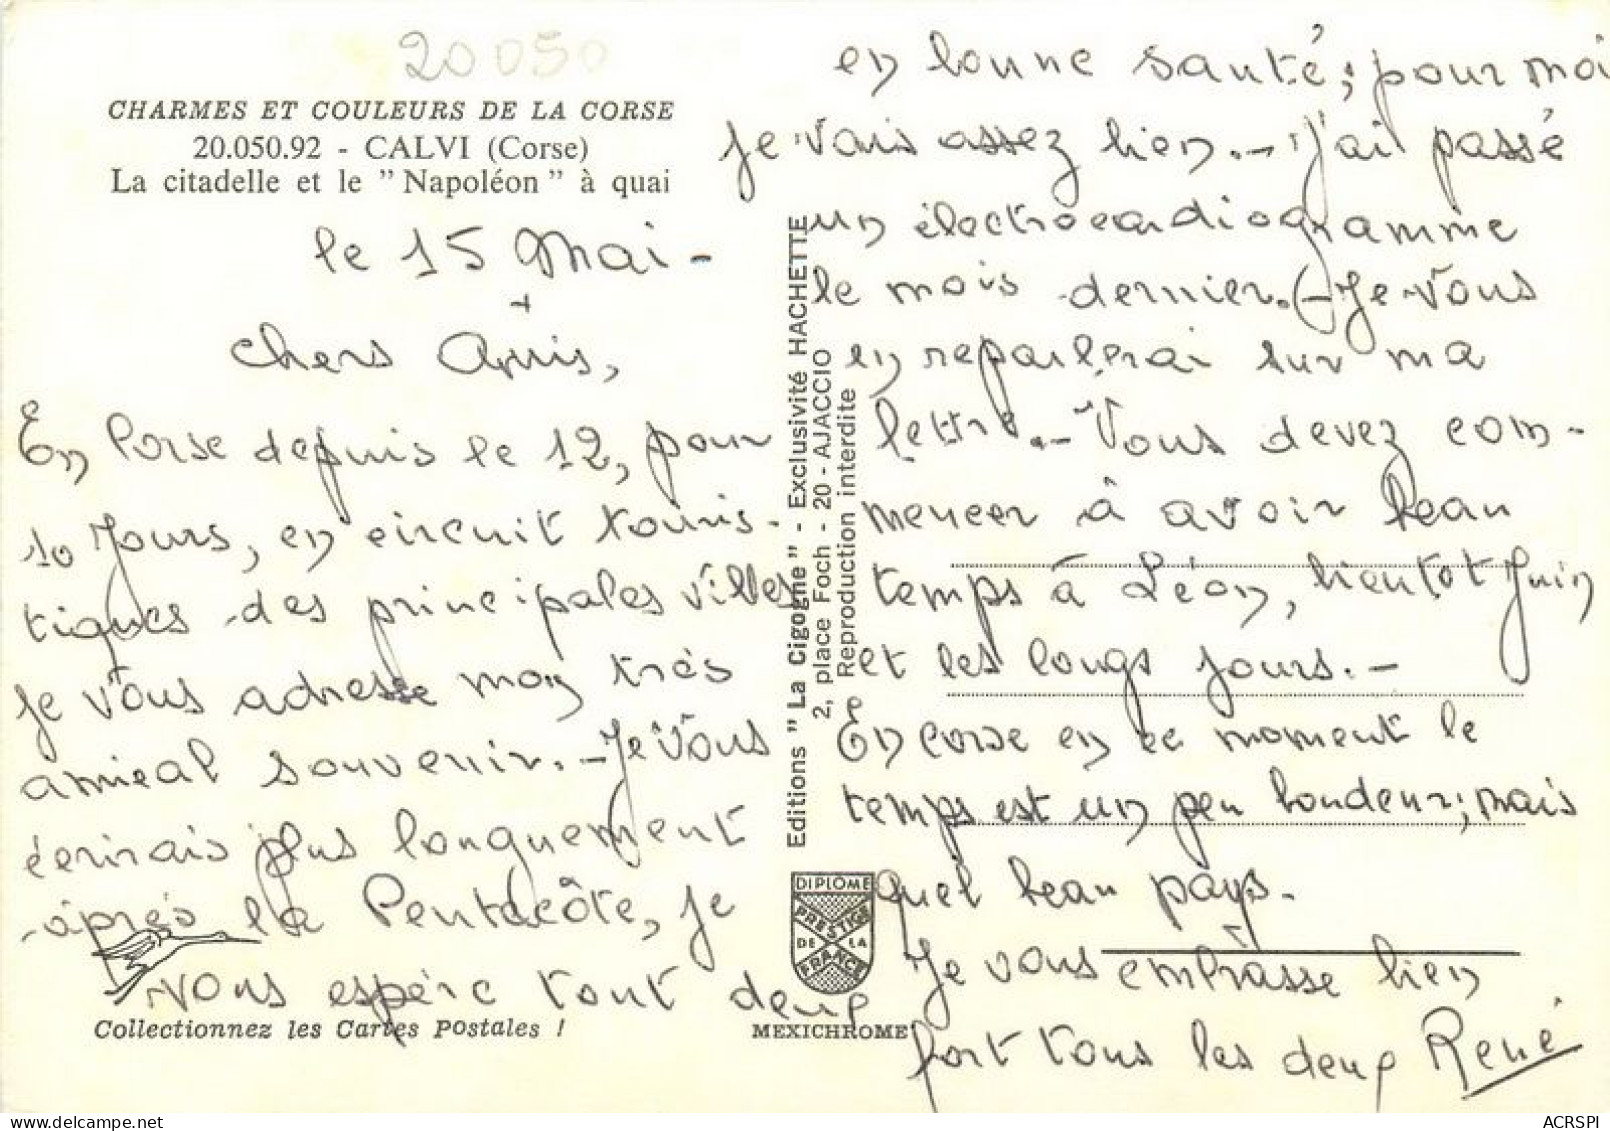 20050
CHARMES ET COULEURS DE LA CORSE
20.050.92 - CALVI (Corse)
La citadelle et le "Napoléon" à quai
le 15 Mai -
Chers Amis,
En Corse depuis le 12, pour
10 Jours, en circuit touris-
tiques des principales villes
je vous adresse mon très
amical souvenir. - Je vous
écrirais plus longuement
après la Pentecôte, je
vous espère tout deux
Collectionnez les Cartes Postales !
Editions "La Cigogne" - Exclusivité HACHETTE
2, place Foch - 20 - AJACCIO
Reproduction interdite
DIPLOME
PRESTIGE
DE LA
FRANCE
MEXICHROME
en bonne santé; pour moi
je vais assez bien. - J'ai passé
un électrocardiogramme
le mois dernier. (- Je vous
en reparlerai sur ma
lettre. - Vous devez com-
mencer à avoir beau
temps à Léon, bientot Juin
et les longs jours. -
En corse en ce moment le
temps est un peu boudeur; mais
quel beau pays.
Je vous embrasse bien
fort tous les deux René
ACRSPI